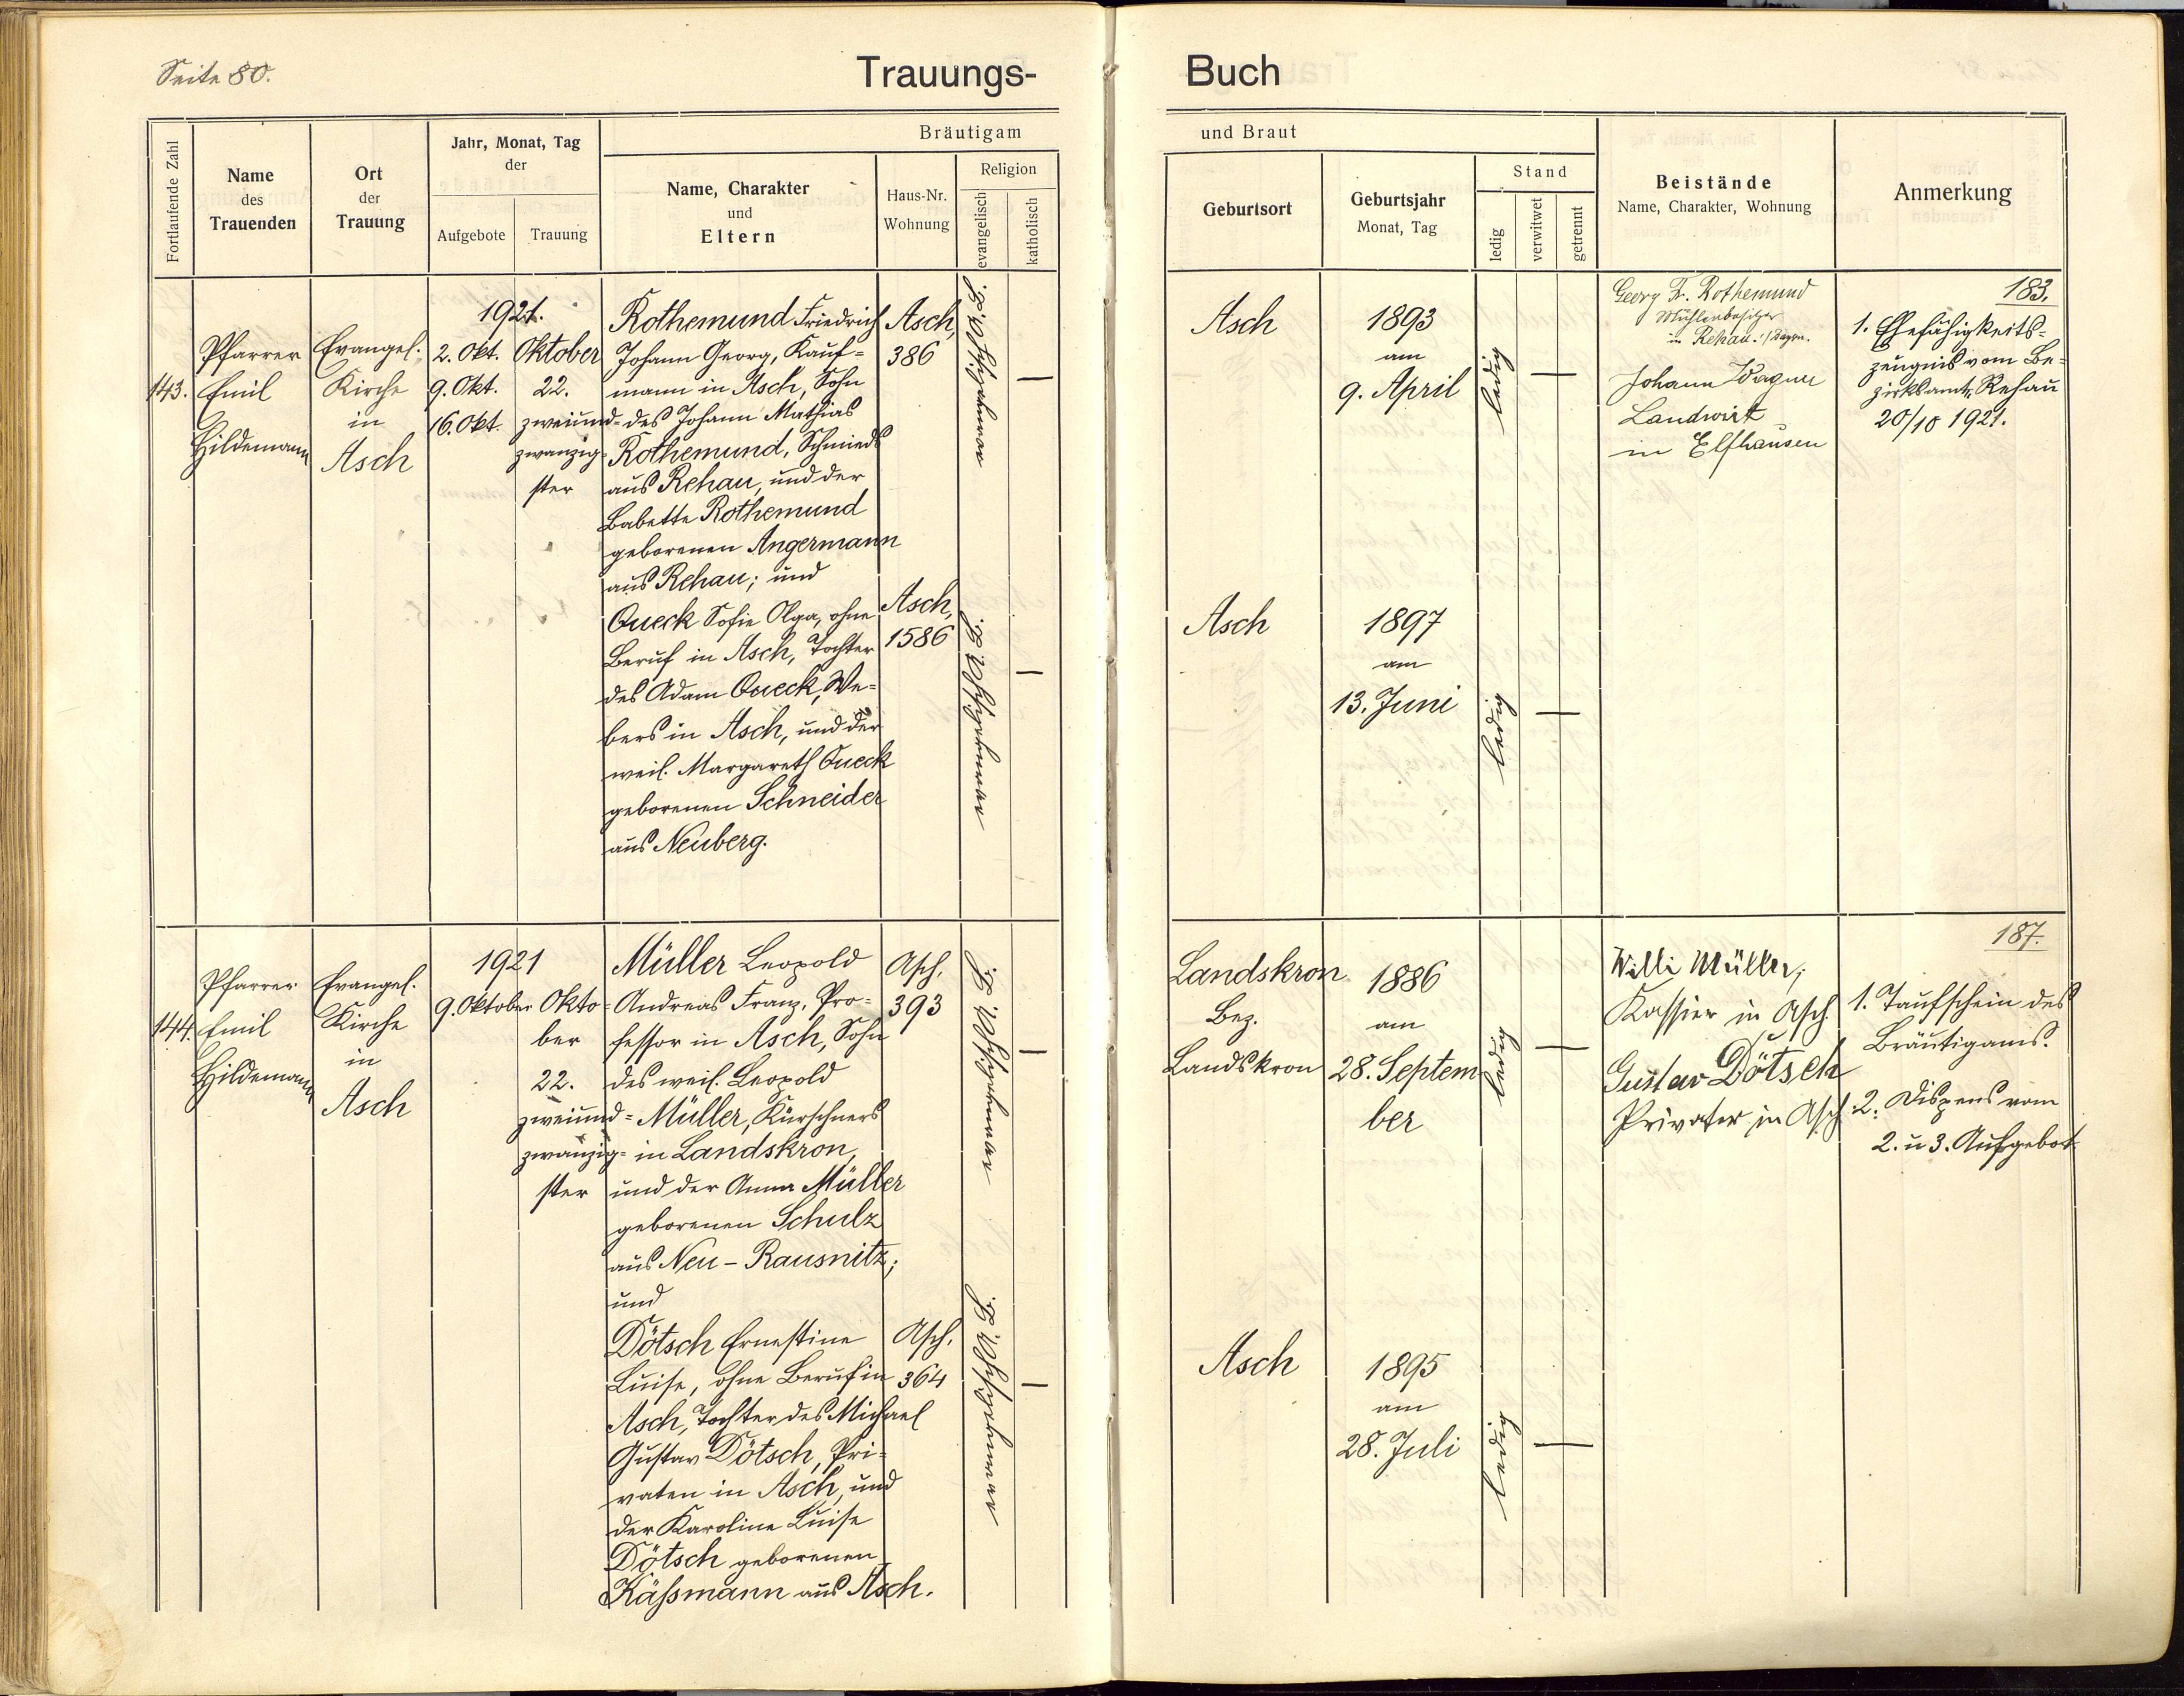 Seite 80.
Trauungs-
Buch
Fortlaufende Zahl
Name
des
Trauenden
Ort
der
Trauung
Jahr, Monat, Tag
der
Aufgebote
Trauung
Bräutigam
Name, Charakter
und
Eltern
Haus-Nr.
Wohnung
Religion
evangelisch
katholisch
und Braut
Geburtsort
Geburtsjahr
Monat, Tag
Stand
ledig
verwitwet
getrennt
Beistände
Name, Charakter, Wohnung
Anmerkung
143.
Pfarrer
Emil
Hildemann
Evangel.
Kirche
in
Asch
1921.
2. Okt.
9. Okt.
16. Okt.
Oktober
22.
zweiund=
zwanzig=
ster
Rothemund Friedrich
Johann Georg, Kauf=
mann in Asch, Sohn
des Johann Mathias
Rothemund, Schmieds
aus Rehau, und der
Babette Rothemund
geborenen Angermann
aus Rehau; und
Queck Sofie Olga, ohne
Beruf in Asch, Tochter
des Adam Queck, We=
bers in Asch, und der
weil. Margareth Queck
geborenen Schneider
aus Neuberg.
Asch,
386
Asch,
1586
Asch
1893
am
9. April
ledig
Asch
1897
am
13. Juni
ledig
Georg Fr. Rothemund
Mühlenbesitzer
in Rehau i/Bayrn.
Johann Wagner
Landwirt
in Elfhausen
183.
1. Ehefähigkeits=
zeugnis vom Be=
zirksamt Rehau
20/10 1921.
144.
Pfarrer
Emil
Hildemann
Evangel.
Kirche
in
Asch
1921
9. Oktober
Okto=
ber
22.
zweiund=
zwanzig=
ster
Müller Leopold
Andreas Franz, Pro=
fessor in Asch, Sohn
des weil. Leopold
Müller, Kürschners
in Landskron,
und der Anna Müller
geborenen Schulz
aus Neu-Rausnitz;
und
Dötsch Ernestine
Luise, ohne Beruf in
Asch, Tochter des Michael
Gustav Dötsch, Pri=
vaten in Asch, und
der Karoline Luise
Dötsch geborenen
Käßmann aus Asch.
Asch,
393
Asch,
364
Landskron
Bez.
Landskron
1886
am
28. Septem
ber
ledig
Asch
1895
am
28. Juli
ledig
Willi Müller,
Kassier in Asch
Gustav Dötsch
Privatier in Asch
187.
1. Taufschein des
Bräutigams.
2. Dispens vom
2. u 3. Aufgebot